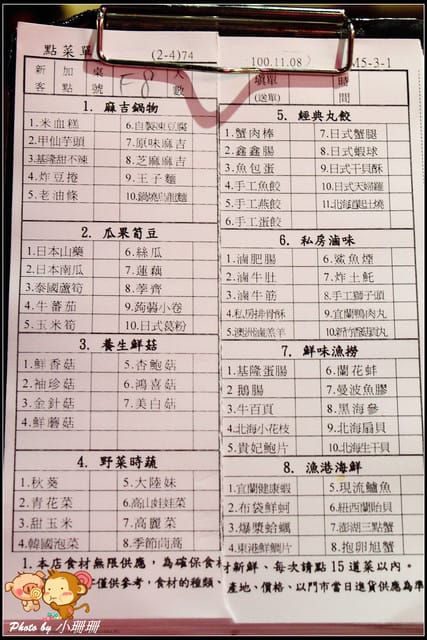 點菜單 (2-4)74 100.11.08 M5-3-1
新客 加點 桌號 F8 人數 填單(送單) 時間
1. 麻吉鍋物
1.米血糕 6.自製凍豆腐
2.甲仙芋頭 7.原味麻吉
3.基隆甜不辣 8.芝麻麻吉
4.炸豆捲 9.王子麵
5.老油條 10.鍋燒烏龍麵
2. 瓜果筍豆
1.日本山藥 6.絲瓜
2.日本南瓜 7.蓮藕
3.泰國蘆筍 8.荸薺
4.牛蕃茄 9.蒟蒻小卷
5.玉米筍 10.日式葛粉
3. 養生鮮菇
1.鮮香菇 5.杏鮑菇
2.袖珍菇 6.鴻喜菇
3.金針菇 7.美白菇
4.鮮蘑菇
4. 野菜時蔬
1.秋葵 5.大陸妹
2.青花菜 6.高山娃娃菜
3.甜玉米 7.高麗菜
4.韓國泡菜 8.季節茼蒿
5. 經典丸餃
1.蟹肉棒 7.日式蟹腿
2.鑫鑫腸 8.日式蝦球
3.魚包蛋 9.日式干貝酥
4.手工魚餃 10.日式天婦羅
5.手工燕餃 11.北海道牡丹燒
6.手工蛋餃
6. 私房滷味
1.滷肥腸 6.鯊魚煙
2.滷牛肚 7.炸土魠
3.滷牛筋 8.手工獅子頭
4.私房排骨酥 9.宜蘭鴨肉丸
5.澳洲滷羔羊 10.新竹香菇貢丸
7. 鮮味漁撈
1.基隆蛋腸 6.蘭花蚌
2.鵝腸 7.曼波魚膠
3.牛百頁 8.黑海參
4.北海小花枝 9.北海扇貝
5.貴妃鮑片 10.北海生干貝
8. 漁港海鮮
1.宜蘭健康蝦 5.現流鱸魚
2.布袋鮮蚵 6.紐西蘭貽貝
3.爆漿蛤蠣 7.澎湖三點蟹
4.東港鮮鯛片 8.抱卵旭蟹
1.本店食材無限供應，為確保食材新鮮、每次請點15道菜以內。
僅供參考，食材的種類、產地、價格、以門市當日進貨供應為準
Photo by 小珊珊